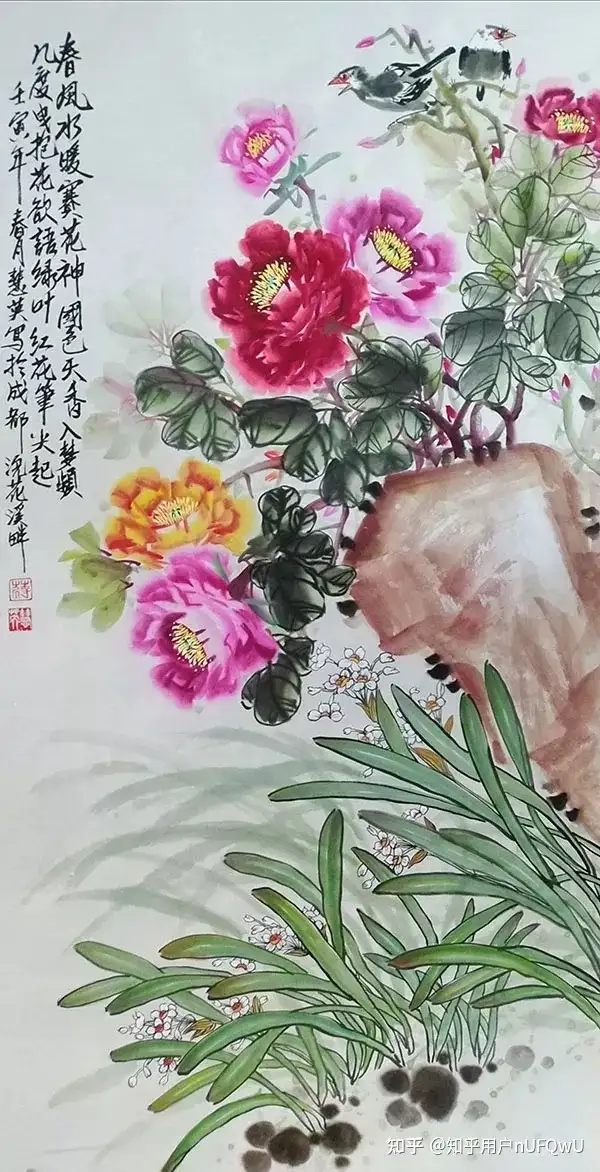 春風水暖賽花神國色天香入
几度曳抱花欲語緑叶红花筆尖起
壬寅年春月慧英写於成都浣花溪畔
知乎 @知乎用户nUFQwU